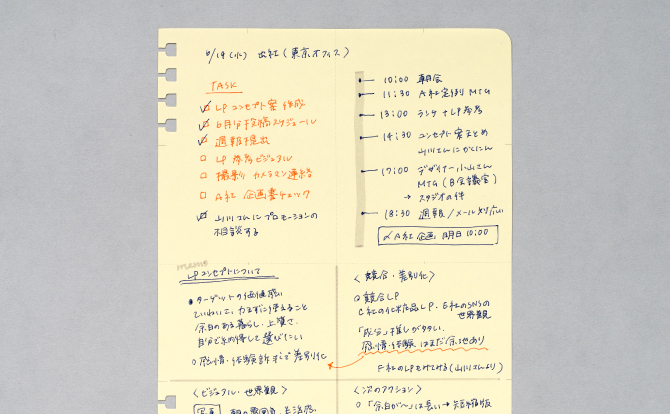 6/19(水) 出社(東京オフィス)
TASK
LP コンセプト案 作成
6月分投稿スケジュール
週報提出
LP 参考ビジュアル
撮影 カメラマン連絡
A社 企画書チェック
山川さんにプロモーションの
相談する
10:00 朝会
11:30 A社定例 MTG
13:00 ランチ+LP参考
14:30 コンセプト案まとめ
山川さんにかくにん
17:00 デザイナー小山さん
MTG (B会議室)
→ スタジオの件
18:30 週報/メール
〆A社 企画 明日10:00
LPコンセプトについて
ターゲットの価値感
余白のある暮らし・上質さ、
自分で納得して選びたい
○感情・体験訴求で差別化
〈競合・差別化〉
○競合LP
C社の化粧品LP、E社のSNSの
世界観
「成分」推しが多い。
感情・体験はまだ余地あり
F社のLPも(山川さんより)
〈ビジュアル・世界観〉
写真 朝の雰囲気・生活感、
〈次のアクション〉
○「余白が〜」は長い→短縮版